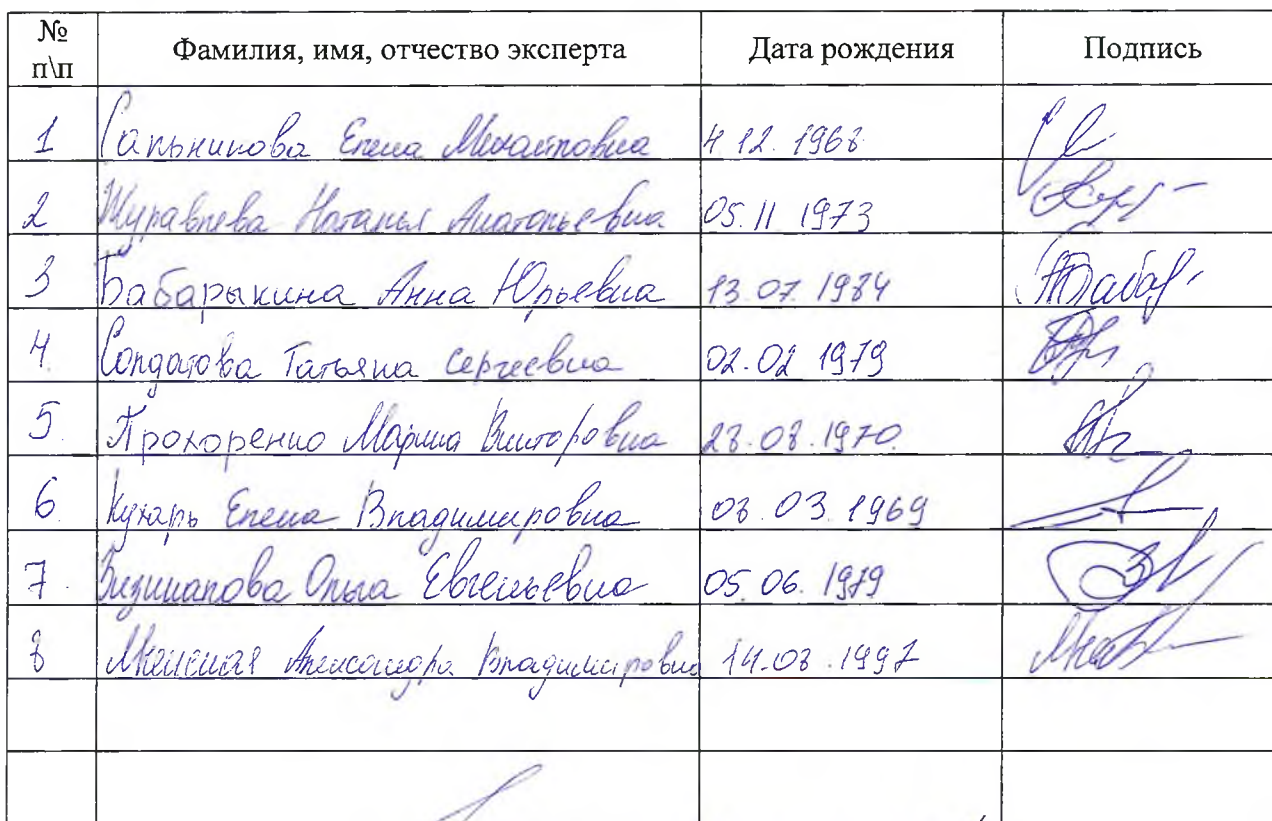 № п\п Фамилия, имя, отчество эксперта Дата рождения Подпись
1 Сальникова Елена Михайловна 4 12. 1968
2 Журавлева Наталья Анатольевна 05.11 1973
3 Бабарыкина Анна Юрьевна 13.07.1984
4. Солдатова Татьяна Сергеевна 02.02 1979
5. Прохоренко Марина Викторовна 28.08.1970.
6. Кухарь Елена Владимировна 08.03.1969
7. Ольга Евгеньевна 05.06.1979
8 Александра Владимировна 14.08.1997